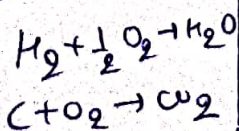 H₂ + 1/2 O₂ → H₂O
C + O₂ → CO₂